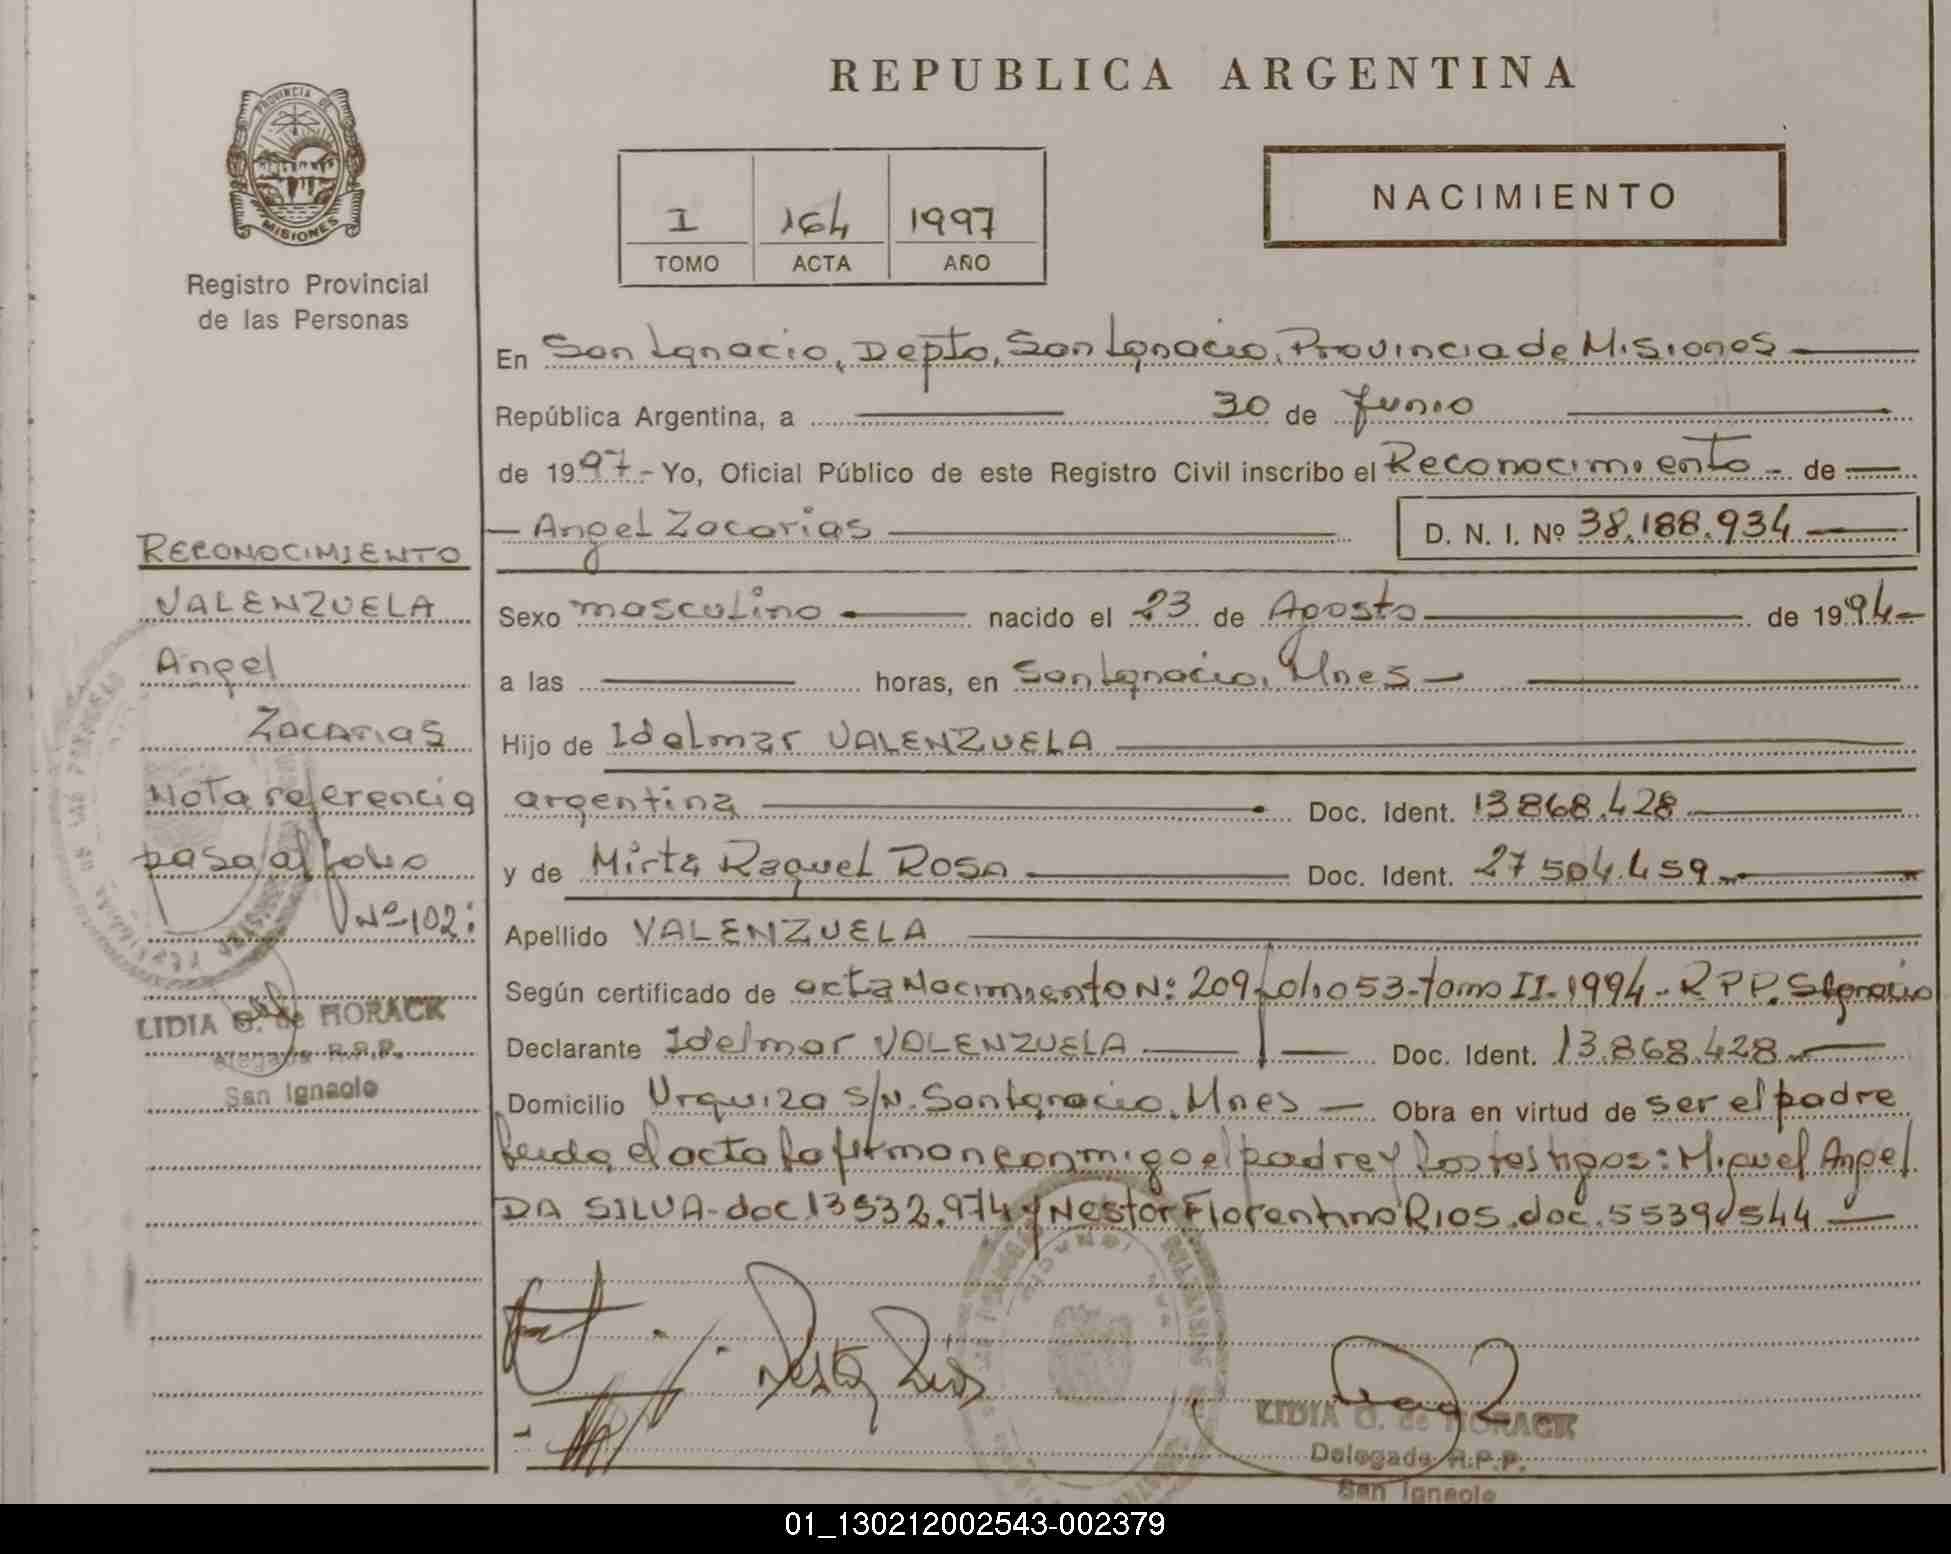 REPUBLICA ARGENTINA
PROVINCIA DE
MISIONES
Registro Provincial
de las Personas
I 164 1997
TOMO ACTA AÑO
NACIMIENTO
En San Ignacio, Depto, San Ignacio, Provincia de Misiones
República Argentina, a 30 de Junio
de 1997.- Yo, Oficial Público de este Registro Civil inscribo el Reconocimiento - de
Angel Zacarias D. N. I. Nº 38.188.934
Sexo masculino nacido el 23 de Agosto de 1994
a las horas, en San Ignacio, Mnes
Hijo de Idelmar VALENZUELA
argentina Doc. Ident. 13868.428
y de Mirta Raquel ROSA Doc. Ident. 27504.459
Apellido VALENZUELA
Según certificado de acta Nacimiento Nº 209 folio 53-tomo II-1994-RPP. S Ignacio
Declarante Idelmar VALENZUELA Doc. Ident. 13.868.428
Domicilio Urquiza s/N. San Ignacio, Mnes Obra en virtud de ser el padre
leida el acta la firman conmigo el padre y los testigos: Miguel Angel
DA SILVA-doc 13532.974 y Nestor Florentino RIOS doc. 5539544
RECONOCIMIENTO
VALENZUELA
Angel
Zacarias
Nota referencia
pasa al folio
Nº 102
LIDIA G. de HORACK
Delegada R.P.P.
San Ignacio
Nestor Rios
LIDIA G. de HORACK
Delegada R.P.P.
San Ignacio
01_130212002543-002379